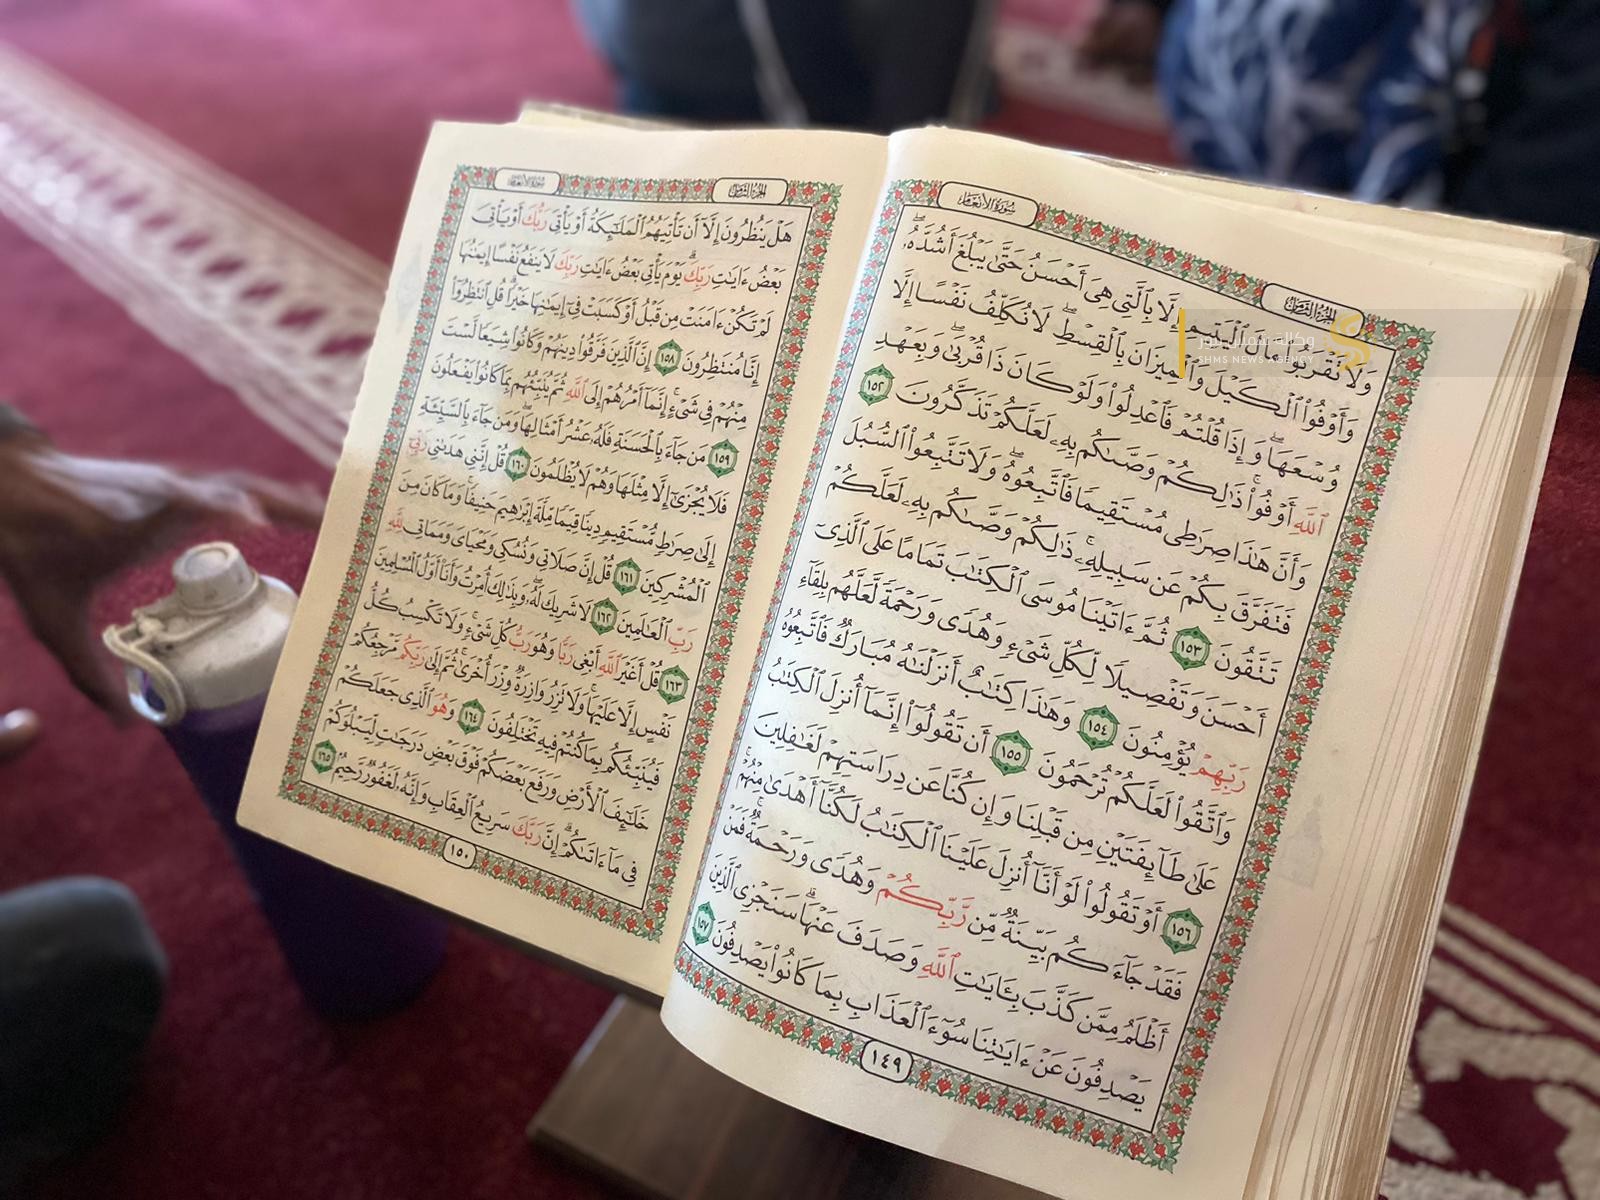 سورة الأنعام
الجزء الثامن
وَلَا تَقۡرَبُواْ مَالَ ٱلۡيَتِيمِ إِلَّا بِٱلَّتِي هِيَ أَحۡسَنُ حَتَّىٰ يَبۡلُغَ أَشُدَّهُۥۖ
وَأَوۡفُواْ ٱلۡكَيۡلَ وَٱلۡمِيزَانَ بِٱلۡقِسۡطِۖ لَا نُكَلِّفُ نَفۡسًا إِلَّا
وُسۡعَهَاۖ وَإِذَا قُلۡتُمۡ فَٱعۡدِلُواْ وَلَوۡ كَانَ ذَا قُرۡبَىٰۖ وَبِعَهۡدِ
ٱللَّهِ أَوۡفُواْۚ ذَٰلِكُمۡ وَصَّىٰكُم بِهِۦ لَعَلَّكُمۡ تَذَكَّرُونَ ١٥٢
وَأَنَّ هَٰذَا صِرَٰطِي مُسۡتَقِيمٗا فَٱتَّبِعُوهُۖ وَلَا تَتَّبِعُواْ ٱلسُّبُلَ
فَتَفَرَّقَ بِكُمۡ عَن سَبِيلِهِۦۚ ذَٰلِكُمۡ وَصَّىٰكُم بِهِۦ لَعَلَّكُمۡ
تَتَّقُونَ ١٥٣ ثُمَّ ءَاتَيۡنَا مُوسَى ٱلۡكِتَٰبَ تَمَامًا عَلَى ٱلَّذِيٓ
أَحۡسَنَ وَتَفۡصِيلٗا لِّكُلِّ شَيۡءٖ وَهُدٗى وَرَحۡمَةٗ لَّعَلَّهُم بِلِقَآءِ
رَبِّهِمۡ يُؤۡمِنُونَ ١٥٤ وَهَٰذَا كِتَٰبٌ أَنزَلۡنَٰهُ مُبَارَكٞ فَٱتَّبِعُوهُ
وَٱتَّقُواْ لَعَلَّكُمۡ تُرۡحَمُونَ ١٥٥ أَن تَقُولُوٓاْ إِنَّمَآ أُنزِلَ ٱلۡكِتَٰبُ
عَلَىٰ طَآئِفَتَيۡنِ مِن قَبۡلِنَا وَإِن كُنَّا عَن دِرَاسَتِهِمۡ لَغَٰفِلِينَ
١٥٦ أَوۡ تَقُولُواْ لَوۡ أَنَّآ أُنزِلَ عَلَيۡنَا ٱلۡكِتَٰبُ لَكُنَّآ أَهۡدَىٰ مِنۡهُمۡۚ
فَقَدۡ جَآءَكُم بَيِّنَةٞ مِّن رَّبِّكُمۡ وَهُدٗى وَرَحۡمَةٞۚ فَمَنۡ
أَظۡلَمُ مِمَّن كَذَّبَ بِـَٔايَٰتِ ٱللَّهِ وَصَدَفَ عَنۡهَاۗ سَنَجۡزِي ٱلَّذِينَ
يَصۡدِفُونَ عَنۡ ءَايَٰتِنَا سُوٓءَ ٱلۡعَذَابِ بِمَا كَانُواْ يَصۡدِفُونَ ١٥٧
١٤٩
سورة الأنعام
الجزء الثامن
هَلۡ يَنظُرُونَ إِلَّآ أَن تَأۡتِيَهُمُ ٱلۡمَلَٰٓئِكَةُ أَوۡ يَأۡتِيَ رَبُّكَ أَوۡ يَأۡتِيَ
بَعۡضُ ءَايَٰتِ رَبِّكَۗ يَوۡمَ يَأۡتِي بَعۡضُ ءَايَٰتِ رَبِّكَ لَا يَنفَعُ نَفۡسًا إِيمَٰنُهَا
لَمۡ تَكُنۡ ءَامَنَتۡ مِن قَبۡلُ أَوۡ كَسَبَتۡ فِيٓ إِيمَٰنِهَا خَيۡرٗاۗ قُلِ ٱنتَظِرُوٓاْ
إِنَّا مُنتَظِرُونَ ١٥٨ إِنَّ ٱلَّذِينَ فَرَّقُواْ دِينَهُمۡ وَكَانُواْ شِيَعٗا لَّسۡتَ
مِنۡهُمۡ فِي شَيۡءٍۚ إِنَّمَآ أَمۡرُهُمۡ إِلَى ٱللَّهِ ثُمَّ يُنَبِّئُهُم بِمَا كَانُواْ يَفۡعَلُونَ
١٥٩ مَن جَآءَ بِٱلۡحَسَنَةِ فَلَهُۥ عَشۡرُ أَمۡثَالِهَاۖ وَمَن جَآءَ بِٱلسَّيِّئَةِ
فَلَا يُجۡزَىٰٓ إِلَّا مِثۡلَهَا وَهُمۡ لَا يُظۡلَمُونَ ١٦٠ قُلۡ إِنَّنِي هَدَىٰنِي رَبِّيٓ
إِلَىٰ صِرَٰطٖ مُّسۡتَقِيمٖ دِينٗا قِيَمٗا مِّلَّةَ إِبۡرَٰهِيمَ حَنِيفٗاۚ وَمَا كَانَ مِنَ
ٱلۡمُشۡرِكِينَ ١٦١ قُلۡ إِنَّ صَلَاتِي وَنُسُكِي وَمَحۡيَايَ وَمَمَاتِي لِلَّهِ
رَبِّ ٱلۡعَٰلَمِينَ ١٦٢ لَا شَرِيكَ لَهُۥۖ وَبِذَٰلِكَ أُمِرۡتُ وَأَنَا۠ أَوَّلُ ٱلۡمُسۡلِمِينَ
١٦٣ قُلۡ أَغَيۡرَ ٱللَّهِ أَبۡغِي رَبّٗا وَهُوَ رَبُّ كُلِّ شَيۡءٖۚ وَلَا تَكۡسِبُ كُلُّ
نَفۡسٍ إِلَّا عَلَيۡهَاۚ وَلَا تَزِرُ وَازِرَةٞ وِزۡرَ أُخۡرَىٰۚ ثُمَّ إِلَىٰ رَبِّكُم مَّرۡجِعُكُمۡ
فَيُنَبِّئُكُم بِمَا كُنتُمۡ فِيهِ تَخۡتَلِفُونَ ١٦٤ وَهُوَ ٱلَّذِي جَعَلَكُمۡ
خَلَٰٓئِفَ ٱلۡأَرۡضِ وَرَفَعَ بَعۡضَكُمۡ فَوۡقَ بَعۡضٖ دَرَجَٰتٖ لِّيَبۡلُوَكُمۡ
فِي مَآ ءَاتَىٰكُمۡۗ إِنَّ رَبَّكَ سَرِيعُ ٱلۡعِقَابِ وَإِنَّهُۥ لَغَفُورٞ رَّحِيمُۢ ١٦٥
١٥٠
وكالة شمس نيوز
SHMS NEWS AGENCY